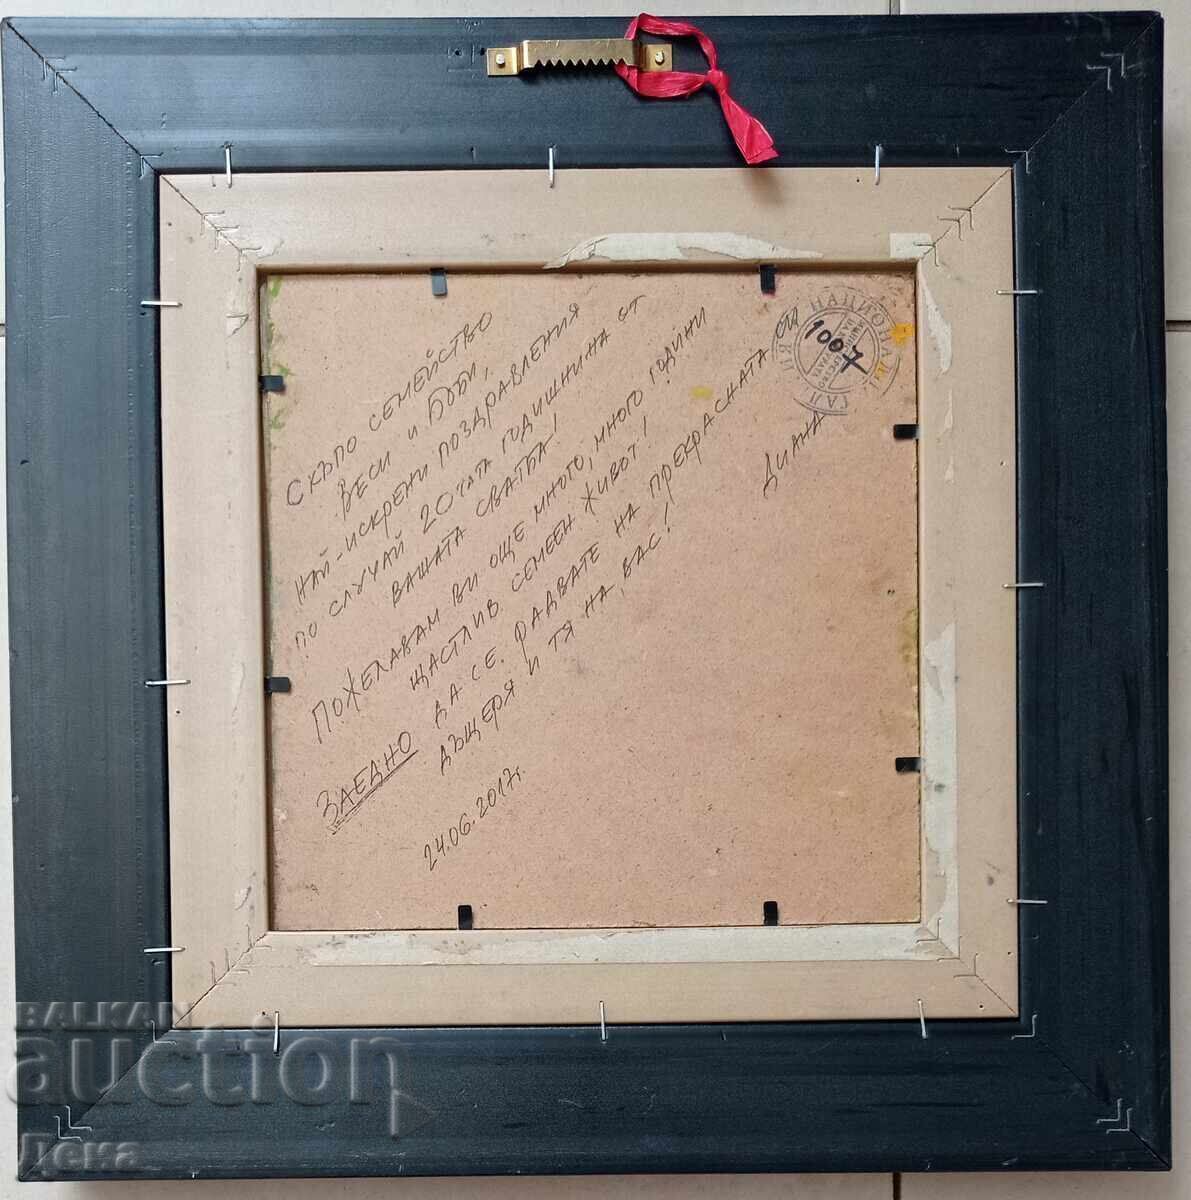 СКЪПО СЕМЕЙСТВО
ВЕСИ И БОБИ,
НАЙ-ИСКРЕНИ ПОЗДРАВЛЕНИЯ
ПО СЛУЧАЙ 20ТАТА ГОДИШНИНА ОТ
ВАШАТА СВАТБА!
ПОЖЕЛАВАМ ВИ ОЩЕ МНОГО, МНОГО ГОДИНИ
ЩАСТЛИВ СЕМЕЕН ЖИВОТ!
ЗАЕДНО ДА СЕ РАДВАТЕ НА ПРЕКРАСНАТА СИ
ДЪЩЕРЯ И ТЯ НА ВАС!
ДИАНА
24.06.2017г.
НАЦИОНАЛ
ГАЛ РИЯ
1007
BALKAN
auction
Дека